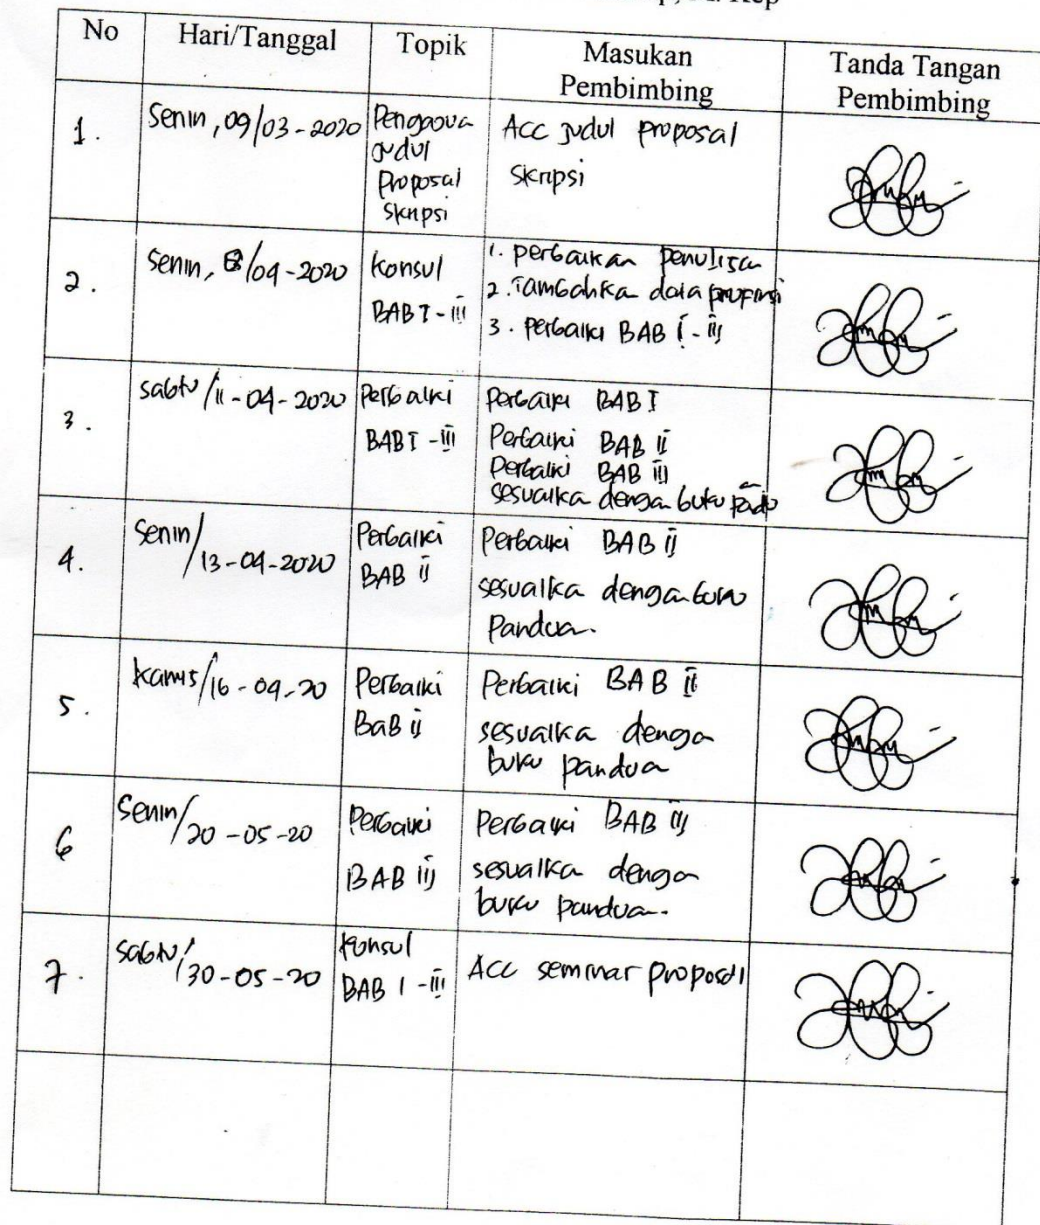 No Hari/Tanggal Topik Masukan Pembimbing Tanda Tangan Pembimbing
1. Senin, 09/03-2020
judul
Proposal
Skripsi
Acc judul proposal
Skripsi
2. Senin, 8/04-2020
Konsul
BAB I-III
1. perbaikan penulisan
2. Tambahka data
3. Perbaiki BAB I-III
3. Sabtu/11-04-2020
Perbaiki
BAB I-III
Perbaiki BAB I
Perbaiki BAB II
Perbaiki BAB III
sesuaika dengan buku
4. Senin/13-04-2020
Perbaiki
BAB II
Perbaiki BAB II
sesuaika dengan buku
Pandua.
5. Kamis/16-04-20
Perbaiki
BaB II
Perbaiki BAB II
sesuaika denga
buku pandua
6 Senin/20-05-20
Perbaiki
BAB III
Perbaiki BAB III
sesuaika denga
buku pandua.
7. Sabtu/30-05-20
Konsul
BAB I-III
Acc seminar proposal